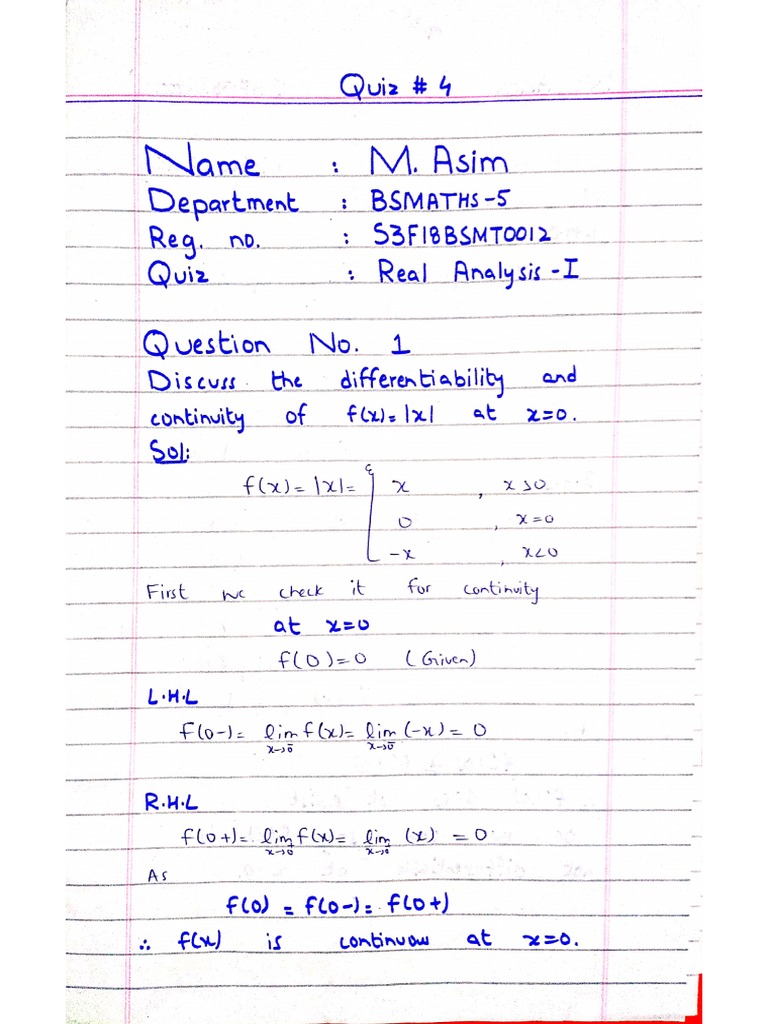 Quiz # 4
Name : M. Asim
Department : BSMATHS-5
Reg. no. : S3F18BSMT0012
Quiz : Real Analysis-I
Question No. 1
Discuss the differentiability and
continuity of f(x)=|x| at x=0.
Sol:
f(x)=|x|= { x , x>0
0 , x=0
-x , x<0
First we check it for continuity
at x=0
f(0)=0 (Given)
L.H.L
f(0-)= lim f(x)= lim (-x)= 0
x→0⁻ x→0⁻
R.H.L
f(0+)= lim f(x)= lim (x) = 0
x→0 x→0
As
f(0) = f(0-)= f(0+)
∴ f(x) is continuous at x=0.